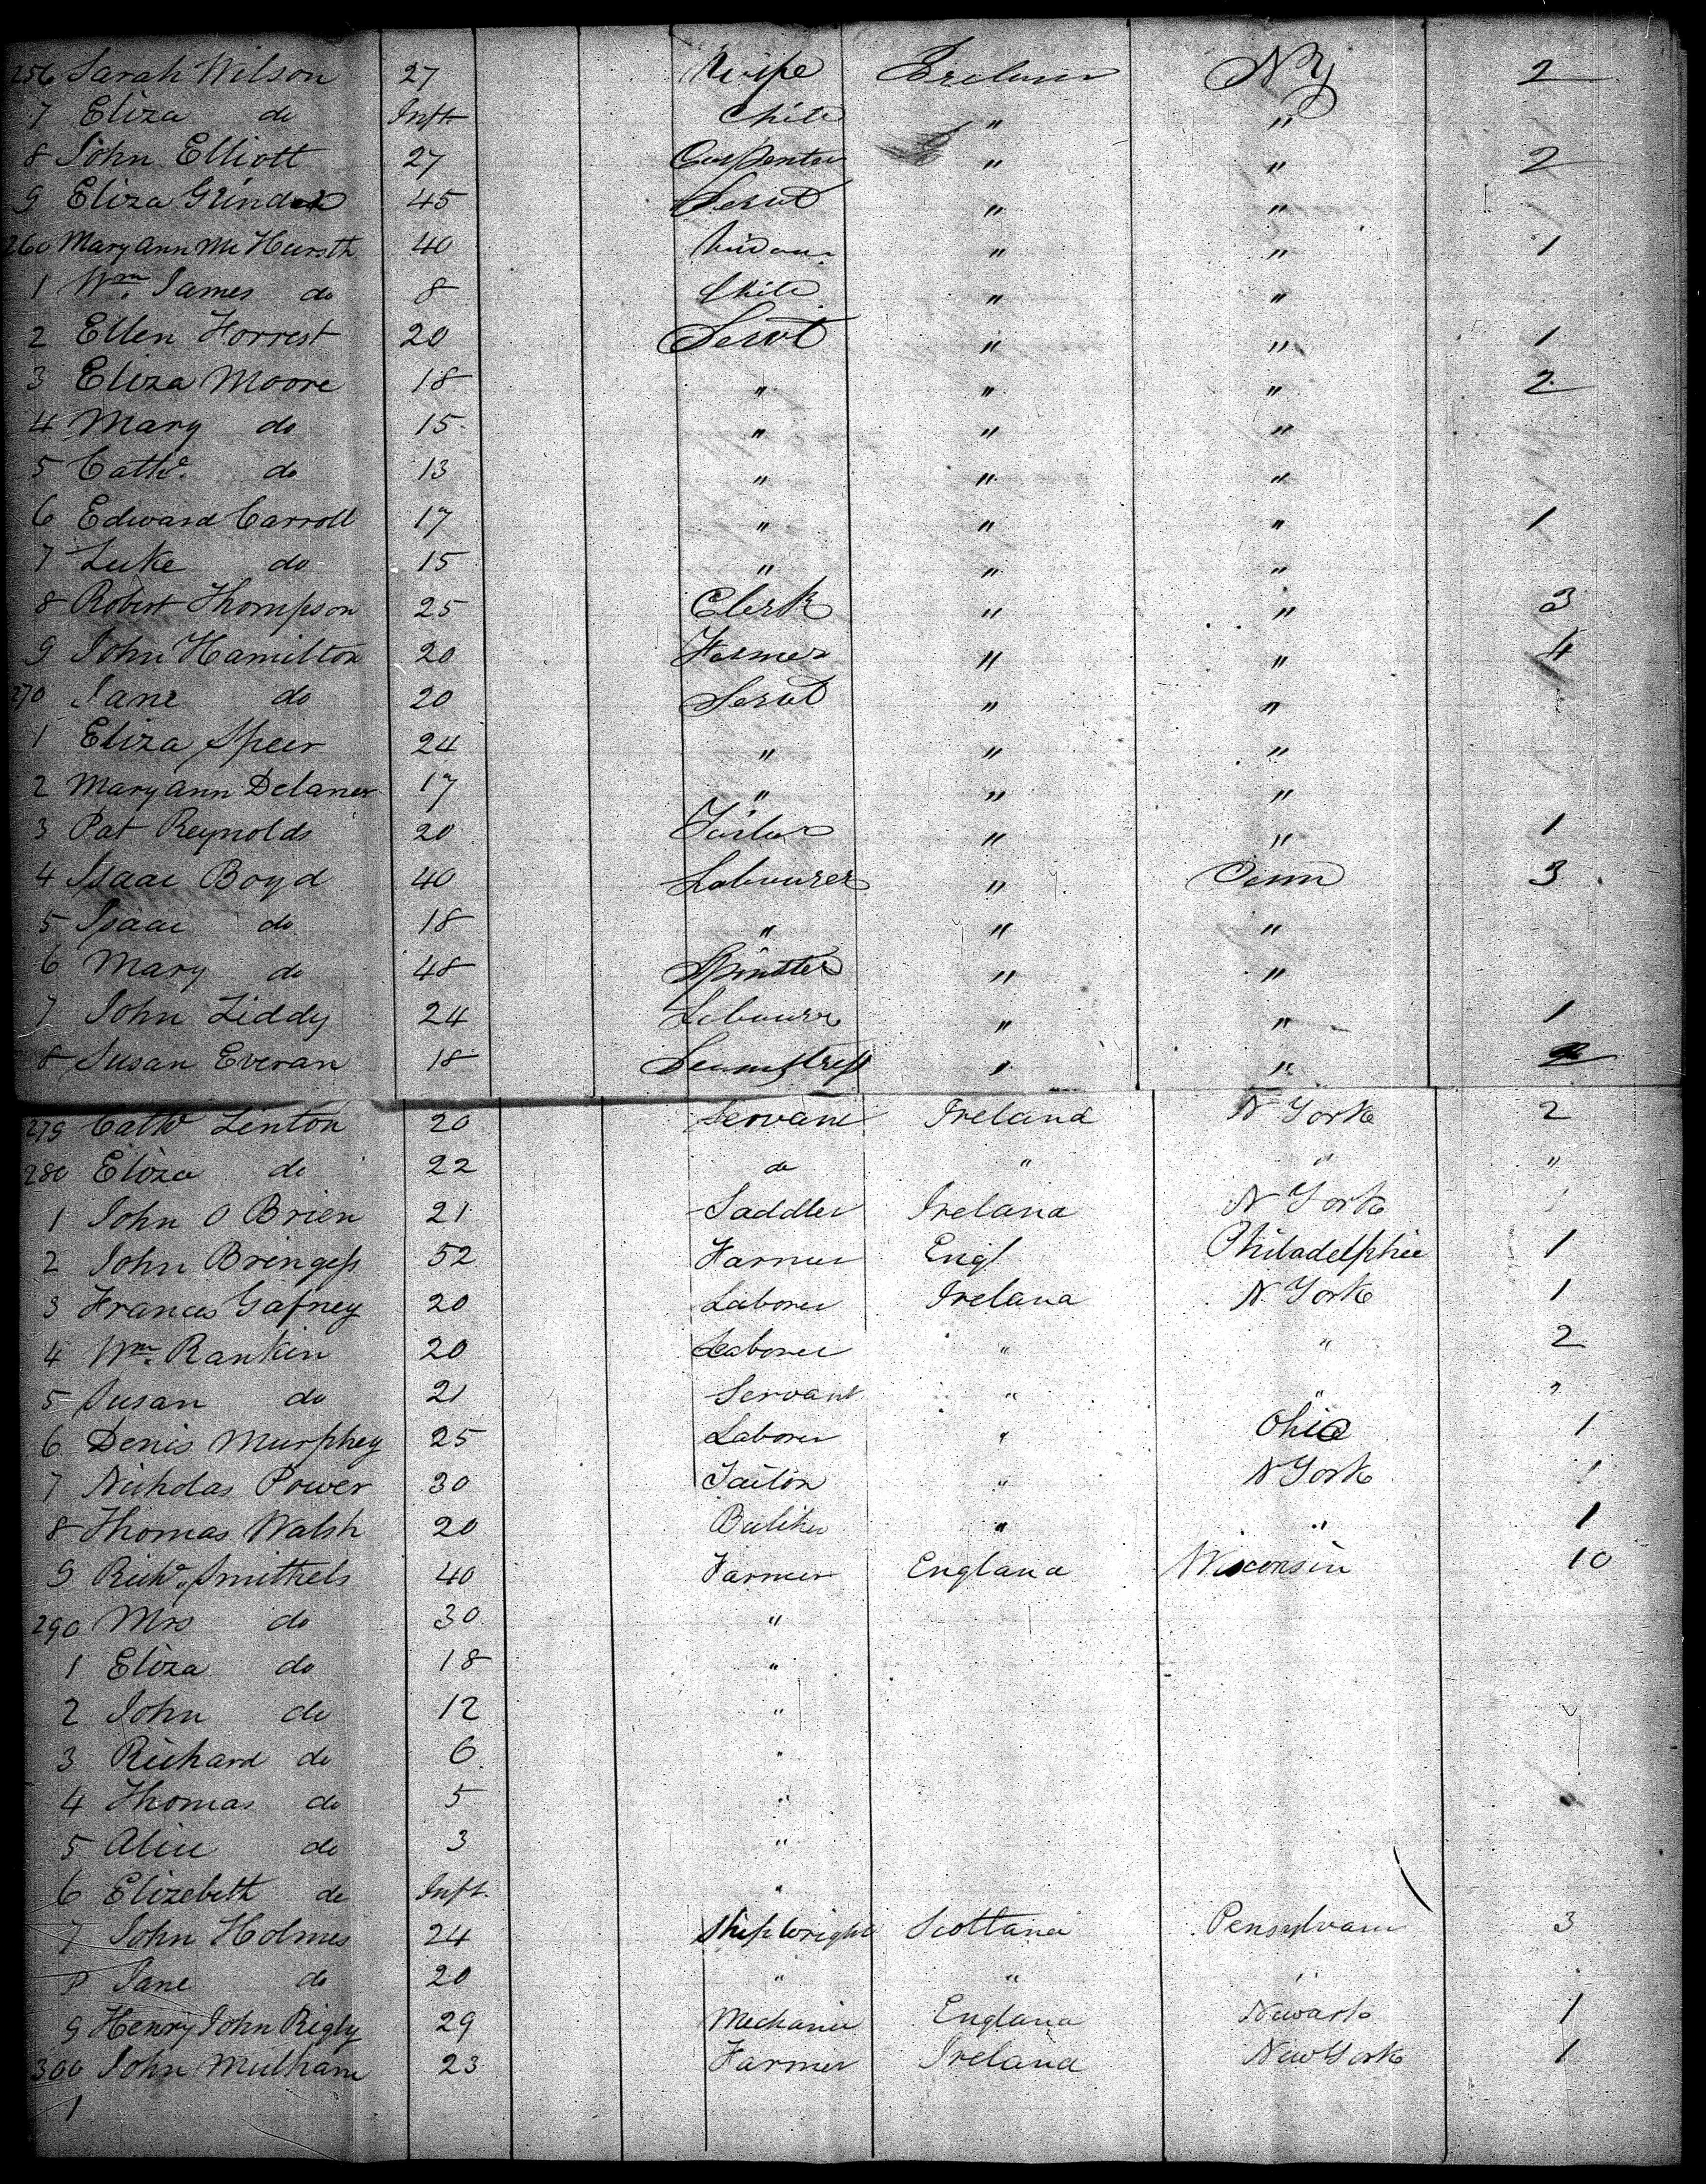 256 Sarah Wilson 27 Wife Ireland NY 2
7 Eliza do Inft. Child " "
8 John Elliott 27 Carpenter " " 2
9 Eliza 45 Servt " "
260 Mary Ann Mc 40 Widow " " 1
1 Wm. James do 8 Child " "
2 Ellen Forrest 20 Servt " " 1
3 Eliza Moore 18 " " " 2
4 Mary do 15 " " "
5 Cathe. do 13 " " "
6 Edward Carroll 17 " " " 1
7 Luke do 15 " " "
8 Robert Thompson 25 Clerk " " 3
9 John Hamilton 20 Farmer " " 4
270 Jane do 20 Servt " "
1 Eliza Speer 24 " " "
2 Mary Ann Delaner 17 " " "
3 Pat Reynolds 20 Tailor " " 1
4 Isaac Boyd 40 Labourer " Penn 3
5 Isaac do 18 " " "
6 Mary do 48 Spinster " "
7 John Liddy 24 Labourer " " 1
8 Susan Everan 18 Seamstress " "
279 Cathe Linton 20 Servant Ireland N York 2
280 Eliza do 22 do " " "
1 John O Brien 21 Saddler Ireland N York 1
2 John Bringess 52 Farmer Engl Philadelphia 1
3 Frances Gafney 20 Laborer Ireland N. York 1
4 Wm. Rankin 20 Laborer " " 2
5 Susan do 21 Servant " " "
6 Denis Murphey 25 Laborer " Ohio 1
7 Nicholas Power 30 Tailor " N York 1
8 Thomas Walsh 20 " " 1
9 Richd. Smithels 40 Farmer England Wisconsin 10
290 Mrs do 30 "
1 Eliza do 18 "
2 John do 12 "
3 Richard do 6 "
4 Thomas do 5 "
5 Alice do 3 "
6 Elizebeth do Inft. "
7 John Holmes 24 Ship Wright Scotland Pensylvam 3
8 Jane do 20 " " "
9 Henry John Rigby 29 Mechanic England Newark 1
300 John Mulham 23 Farmer Ireland New York 1
1